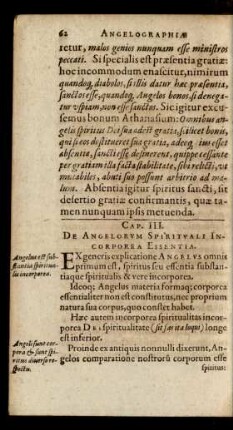 62 ANGELOGRAPHIÆ
retur, malos genios nunquam esse ministros
peccati. Si specialis est præsentia gratiæ:
hoc incommodum enascitur, nimirum
quandoq, diabolos, si illis datur hæc præsentia,
sanctos esse, quandoq, Angelos bonos, si denega-
tur uspiam, non esse sanctos. Sic igitur excu-
semus bonum Athanasium: Omnibus an-
gelis spiritus Dei sua adest gratia, si licet bonis,
qui si eos destitueret sua gratia, adeoq, ius esset
essentia, sancti esse desinerent, quippe essent
per gratiam illa facta stabilitate, sibi relicti, ut
mutabiles, abuti suo possunt arbitrio ad ma-
lum. Absentia igitur spiritus sancti, sit
desertio gratiæ confirmantis, quæ ta-
men nunquam ipsis metuenda.
CAP. III.
DE ANGELORVM SPIRITVALI IN-
CORPOREA ESSENTIA.
Angelus est sub-
stantia spiritua-
lis incorporea.
EX generis explicatione ANGELVS omnis
primum est, spiritus seu essentia substan-
tiaque spiritualis & vere incorporea.
Ideoq; Angelus materia formaq; corporea
essentialiter non est constitutus, nec proprium
natura sua corpus, quo constet habet.
Hæc autem incorporea spiritualitas incor-
porea DEI spiritualitate (sit fas ita loqui) longe
est inferior.
Angeli sunt cor-
pora & sunt spi-
ritus diverso re-
spectu.
Proinde ex antiquis nonnulli dixerunt, An-
gelos comparatione nostrorum corporum esse
spiritus: